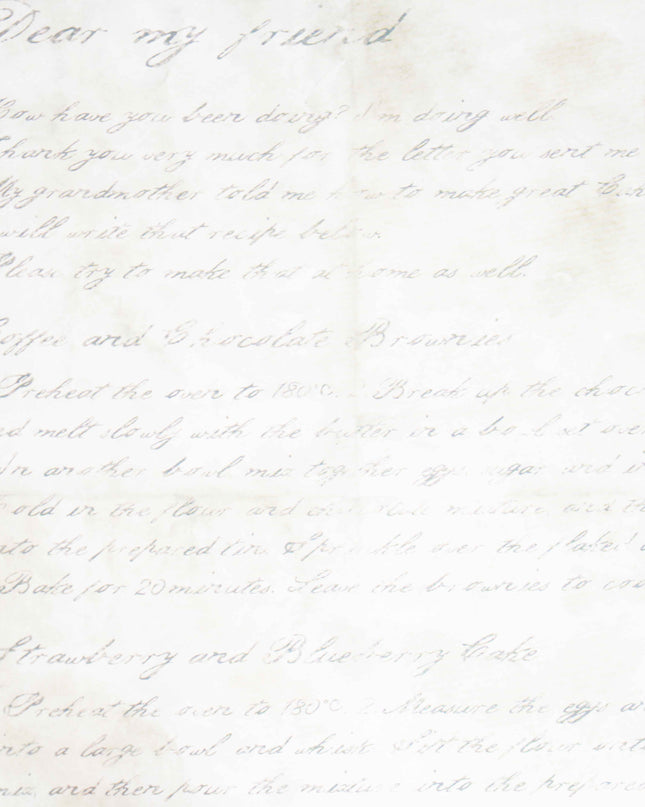 Dear my friend
How have you been doing? I'm doing well
Thank you very much for the letter you sent me
My grandmother told me how to make great
will write that recipe below.
Please try to make that at home as well.
Coffee and Chocolate Brownies
Preheat the oven to 180°C. 2. Break up the choc
nd melt slowly with the butter in a bowl set over
In another bowl mix together eggs, sugar and
Fold in the flour and chocolate mixture, and
nto the prepared tin. Sprinkle over the flaked
Bake for 20 minutes. Leave the brownies to coo
Strawberry and Blueberry Cake
Preheat the oven to 180°C. 2. Measure the eggs an
into a large bowl and whisk. Sift the flour
mix, and then pour the mixture into the prepare